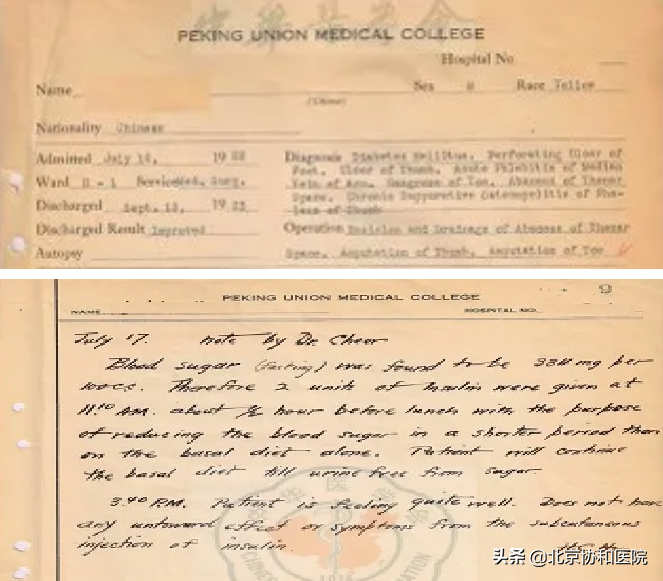 PEKING UNION MEDICAL COLLEGE
Hospital No
Name Sex Race Yellow
(Chinese)
Nationality Chinese
Admitted July 1 , 19
Ward Service Med. Surg.
Discharged Sept. 19
Discharged Result Improved
Autopsy
Diagnosis Diabetes Mellitus. Perforating Ulcer of
Foot. Ulcer of Thumb. Acute Phlebitis of Median
Vein of Arm. Gangrene of Toe. Abscess of Thenar
Space. Chronic Suppurative Osteomyelitis of Pha-
lanx of Thumb
Operation Incision and Drainage of Abscess of Thenar
Space. Amputation of Thumb. Amputation of Toe
9
PEKING UNION MEDICAL COLLEGE
NAME HOSPITAL NO.
July 17. note by Dr. Cheer
Blood sugar (fasting) was found to be mg per
100cc. Therefore 2 units of Insulin were given at
11:10 AM. about ½ hour before lunch with the purpose
of reducing the blood sugar in a shorter period than
on the basal diet alone. Patient will continue
the basal diet till urine free from sugar.
3:40 P.M. Patient is feeling quite well. Does not have
any untoward effect or symptoms from the subcutaneous
injection of insulin.
头条 @北京协和医院